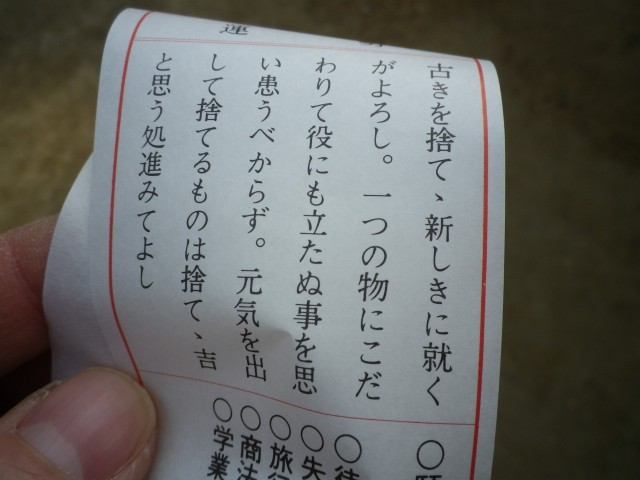 運
古きを捨て、新しきに就く
がよろし。一つの物にこだ
わりて役にも立たぬ事を思
い患うべからず。元気を出
して捨てるものは捨て、吉
と思う処進みてよし
○
○待
○失
○旅行
○商法
○学業